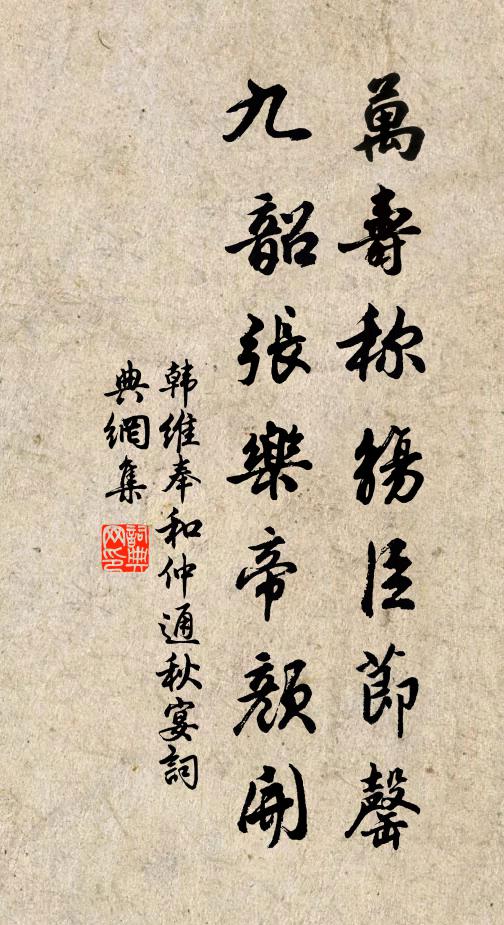 萬壽称觴臣節罄
九韶張樂帝顏開
韩维奉和仲通秋宴詞
典網集
詞典網印